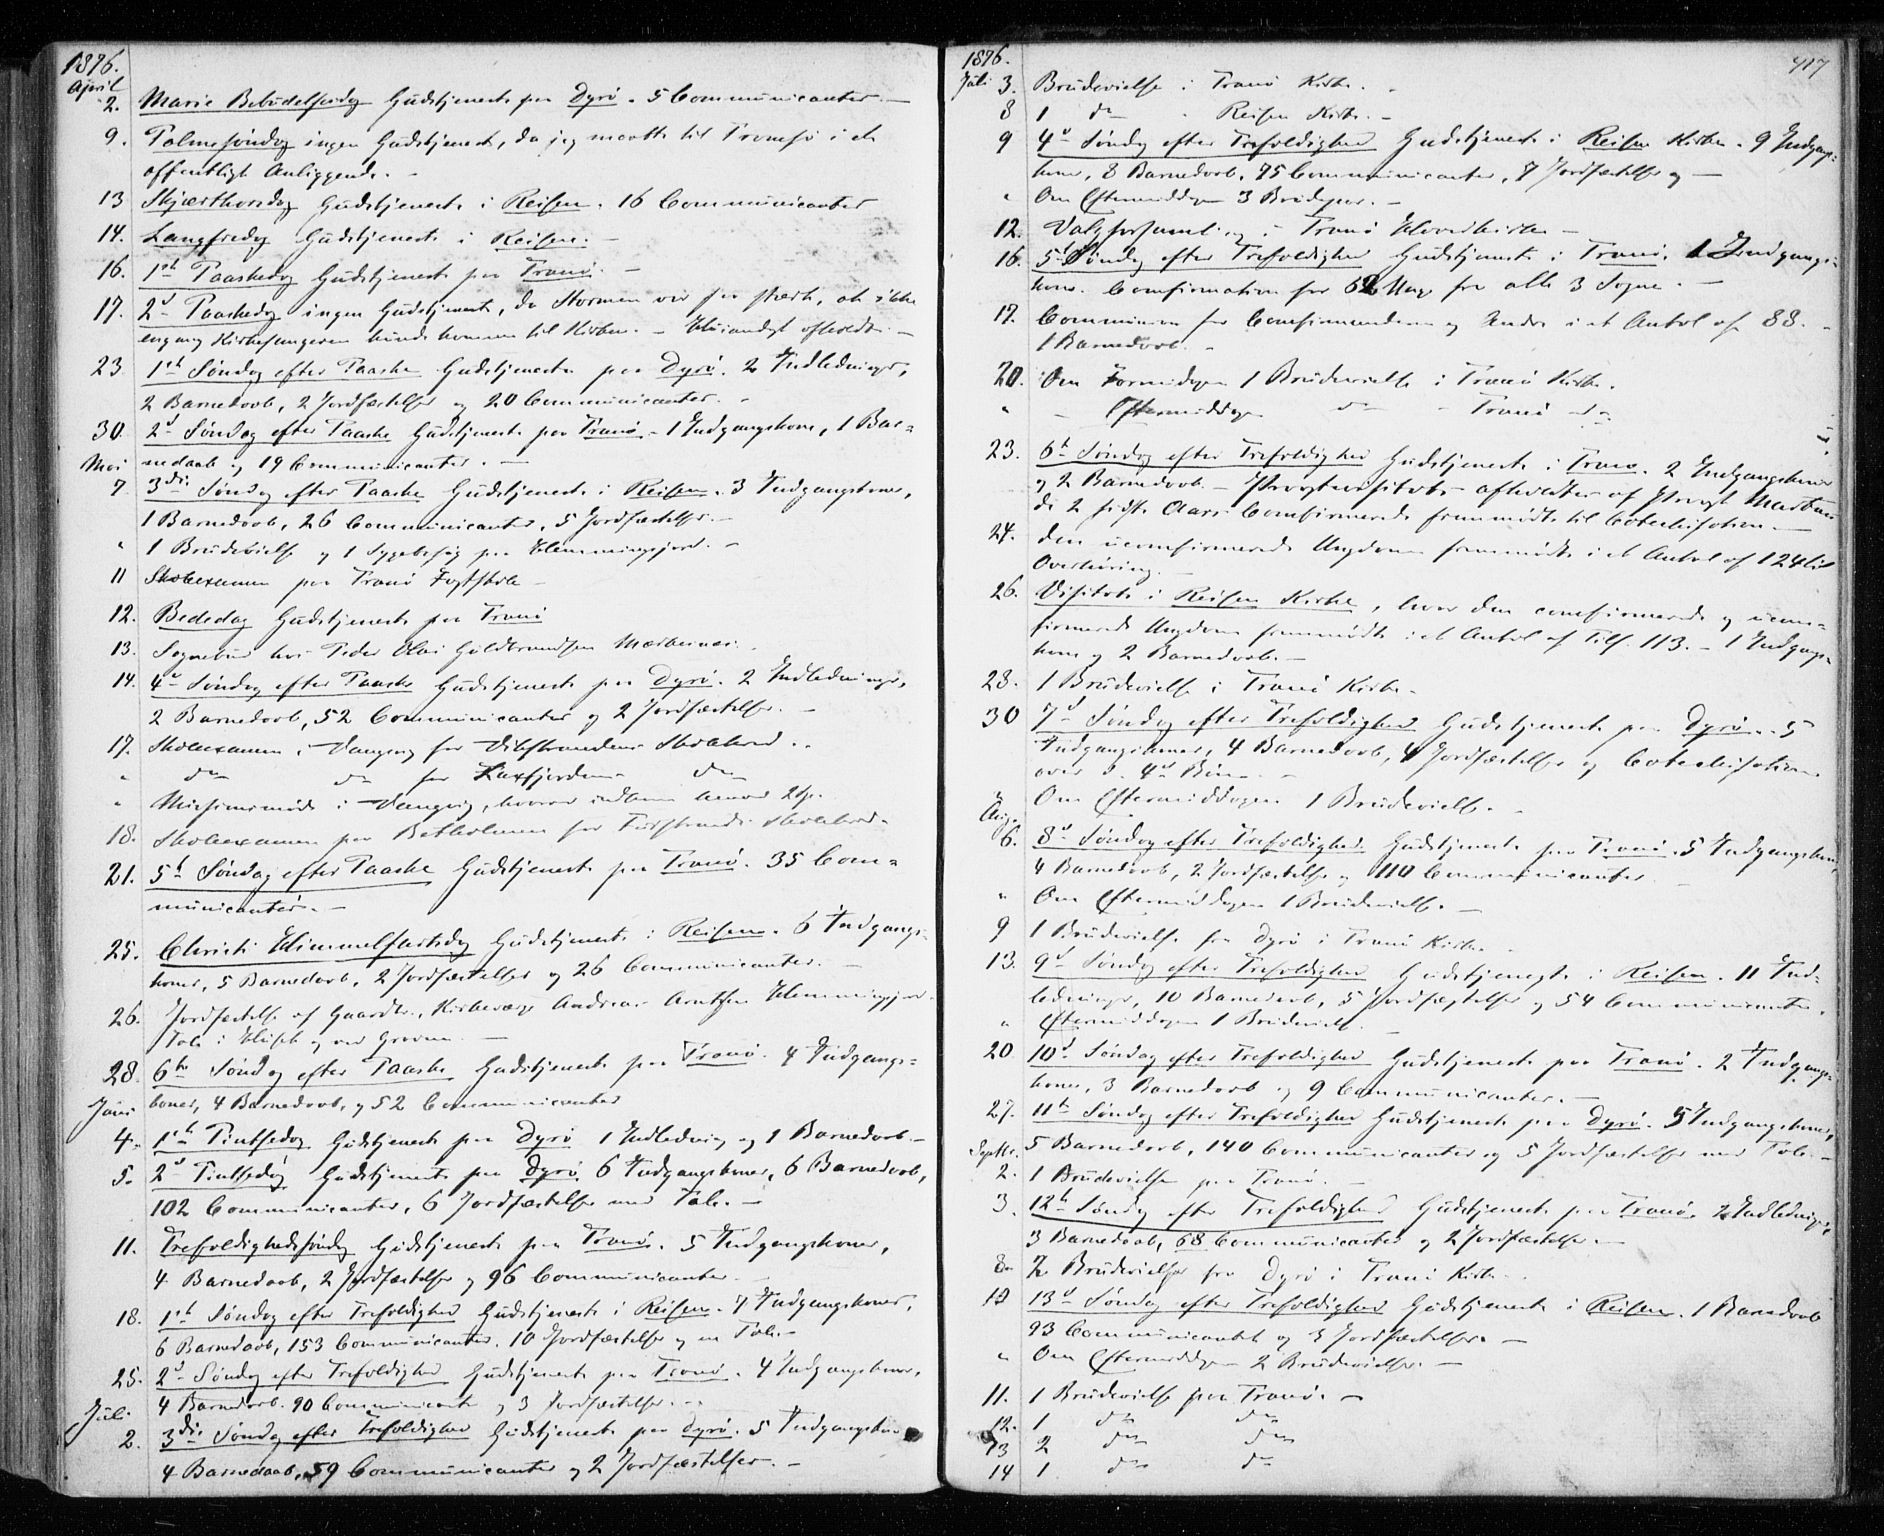 1876.
April
2. Marie Bebudelsesdag Gudstjeneste paa Dyrö. 5 Communicanter. —
9. Palmesöndag ingen Gudstjeneste, da jeg maatte til Tromsö i et
offentligt Anliggende. -
13 Skjærthorsdag Gudstjeneste i Reisen. 16 Communicanter
14. Langfredag Gudstjeneste i Reisen. —
16. 1ste Paaskedag Gudstjeneste paa Tranö. —
17. 2den Paaskedag ingen Gudstjeneste, da Stormen var for stærk, at ikke
engang Kirkesangeren kunde komme til Kirken. —
23 1ste Söndag efter Paaske Gudstjeneste paa Dyrö. 2 Indledninger,
2 Barnedaab, 2 Jordfæstelser og 20 Communicanter. -
30. 2den Söndag efter Paaske Gudstjeneste paa Tranö - 1 Indgangskone, 1 Bar-
Mai nedaab og 19 Communicanter. —
7 3die Söndag efter Paaske Gudstjeneste i Reisen. 3 Indgangskoner,
1 Barnedaab, 26 Communicanter, 5 Jordfæstelser. —
" 1 Brudevielse og 1 Sygebesög paa Klemmingsjord. -
11 Skoleexamen paa Tranö Fastskole -
12. Bededag Gudstjeneste paa Tranö
13. Sognebud hos Peder Olai Guldbrandsen
14. 4de Söndag efter Paaske Gudstjeneste paa Dyrö. 2 Indledninger,
2 Barnedaab, 52 Communicanter og 2 Jordfæstelser. —
17. Skoleexamen i Vangvig for Skolekreds. -
" do do for Laxfjorden do
" Missionsmöde i Vangvig, hvorved indkom
18. Skoleexamen paa for Skolekreds.
21. 5te Söndag efter Paaske Gudstjeneste paa Tranö. 35 Com-
municanter. —
25. Christi Himmelfartsdag Gudstjeneste i Reisen. 6 Indgangs-
koner, 5 Barnedaab, 2 Jordfæstelser og 26 Communicanter. —
26. Jordfæstelse af Gaardbr., Kirkeværge Andreas Arntsen Klemmingsjord.
Tale i Huset og ved Graven. —
28. 6te Söndag efter Paaske Gudstjeneste paa Tranö. 4 Indgangs-
Juni koner, 4 Barnedaab, og 52 Communicanter
4. 1ste Pintsedag Gudstjeneste paa Dyrö 1 Indledning og 1 Barnedaab. -
5. 2den Pintsedag Gudstjeneste paa Dyrö 6 Indgangskoner, 6 Barnedaab,
102 Communicanter, 6 Jordfæstelser med Tale. —
11. Trefoldighedssöndag Gudstjeneste paa Tranö. 5 Indgangskoner,
4 Barnedaab, 2 Jordfæstelser og 96 Communicanter.
18. 1ste Söndag efter Trefoldighed Gudstjeneste i Reisen. 7 Indgangskoner,
6 Barnedaab, 153 Communicanter. 10 Jordfæstelser og en Tale. -
25. 2den Söndag efter Trefoldighed Gudstjeneste paa Tranö. 4 Indgangskoner,
Juli 4 Barnedaab. 90 Communicanter og 3 Jordfæstelser. -
2. 3die Söndag efter Trefoldighed Gudstjeneste paa Dyrö. 5 Indgangskoner
4 Barnedaab, 59 Communicanter og 2 Jordfæstelser. —
1876. 417
Juli 3. Brudevielse i Tranö Kirke. -
8 1 do - Reisen Kirke. —
9 4de Söndag efter Trefoldighed Gudstjeneste i Reisen Kirke. 9 Indgangs-
koner, 8 Barnedaab, 75 Communicanter, 7 Jordfæstelser og —
" Om Eftermiddagen 3 Brudepar. —
12. Valgforsamling i Tranö Hovedkirke —
16. 5te Söndag efter Trefoldighed Gudstjeneste i Tranö. 1 Indgangs-
kone. Comfirmation for 62 Unge fra alle 3 Sogne. —
17. Communion for Comfirmanderne og Andre i et Antal af 88. -
1 Barnedaab. -
20. Om Formidagen 1 Brudevielse i Tranö Kirke.
" - Eftermiddagen do - Tranö do
23. 6te Söndag efter Trefoldighed Gudstjeneste i Tranö. 2 Indgangskoner
og 2 Barnedaab. - Provstevisitats afholdtes af Provst
de 2 sidste Aars Comfirmerede fremmödte til Catechisation. —
24. Den ucomfirmerede Ungdom fremmödte i et Antal af 124 til
Overhöring. -
26. Visitats i Reisen Kirke, hvor den comfirmerede og ucom-
firmerede Ungdom fremmödte i et Antal af tils. 113. - 1 Indgangs-
kone og 2 Barnedaab. —
28. 1 Brudevielse i Tranö Kirke.
30 7de Söndag efter Trefoldighed Gudstjeneste paa Dyrö. 5
Indgangskoner, 4 Barnedaab, 4 Jordfæstelser og Catechisation
over d. 4de Bön. -
" Om Eftermiddagen 1 Brudevielse. -
Aug.
6. 8de Söndag efter Trefoldighed Gudstjeneste paa Tranö. 5 Indgangskoner,
4 Barnedaab, 2 Jordfæstelser og 110 Communicanter
" Om Eftermiddagen 1 Brudevielse. —
9 1 Brudevielse fra Dyrö i Tranö Kirke. -
13. 9de Söndag efter Trefoldighed Gudstjeneste i Reisen. 11 Ind-
ledninger, 10 Barnedaab, 5 Jordfæstelser og 54 Communicanter.
" Eftermiddagen 1 Brudevielse. —
20 10de Söndag efter Trefoldighed Gudstjeneste paa Tranö. 2 Indgangs-
koner, 3 Barnedaab og 9 Communicanter. —
27. 11te Söndag efter Trefoldighed Gudstjeneste paa Dyrö. 5 Indgangskoner,
Septbr. 5 Barnedaab, 140 Communicanter og 5 Jordfæstelser med Tale. —
2. 1 Brudevielse paa Tranö. —
3. 12te Söndag efter Trefoldighed Gudstjeneste paa Tranö. 2 Indledninger,
3 Barnedaab, 68 Communicanter og 2 Jordfæstelser. —
8. 2 Brudevielser fra Dyrö i Tranö Kirke. -
10 13de Söndag efter Trefoldighed Gudstjeneste i Reisen. 1 Barnedaab
93 Communicanter og 3 Jordfæstelser. —
" Om Eftermiddagen 2 Brudevielser. —
11. 1 Brudevielse paa Tranö. —
12. 1 do do
13 2 do do
14 1 do do